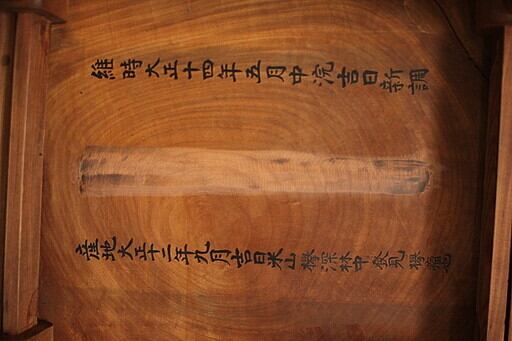 維時大正十四年五月中浣吉日新調
産地大正十二年九月吉日米山欅深林中發見欅